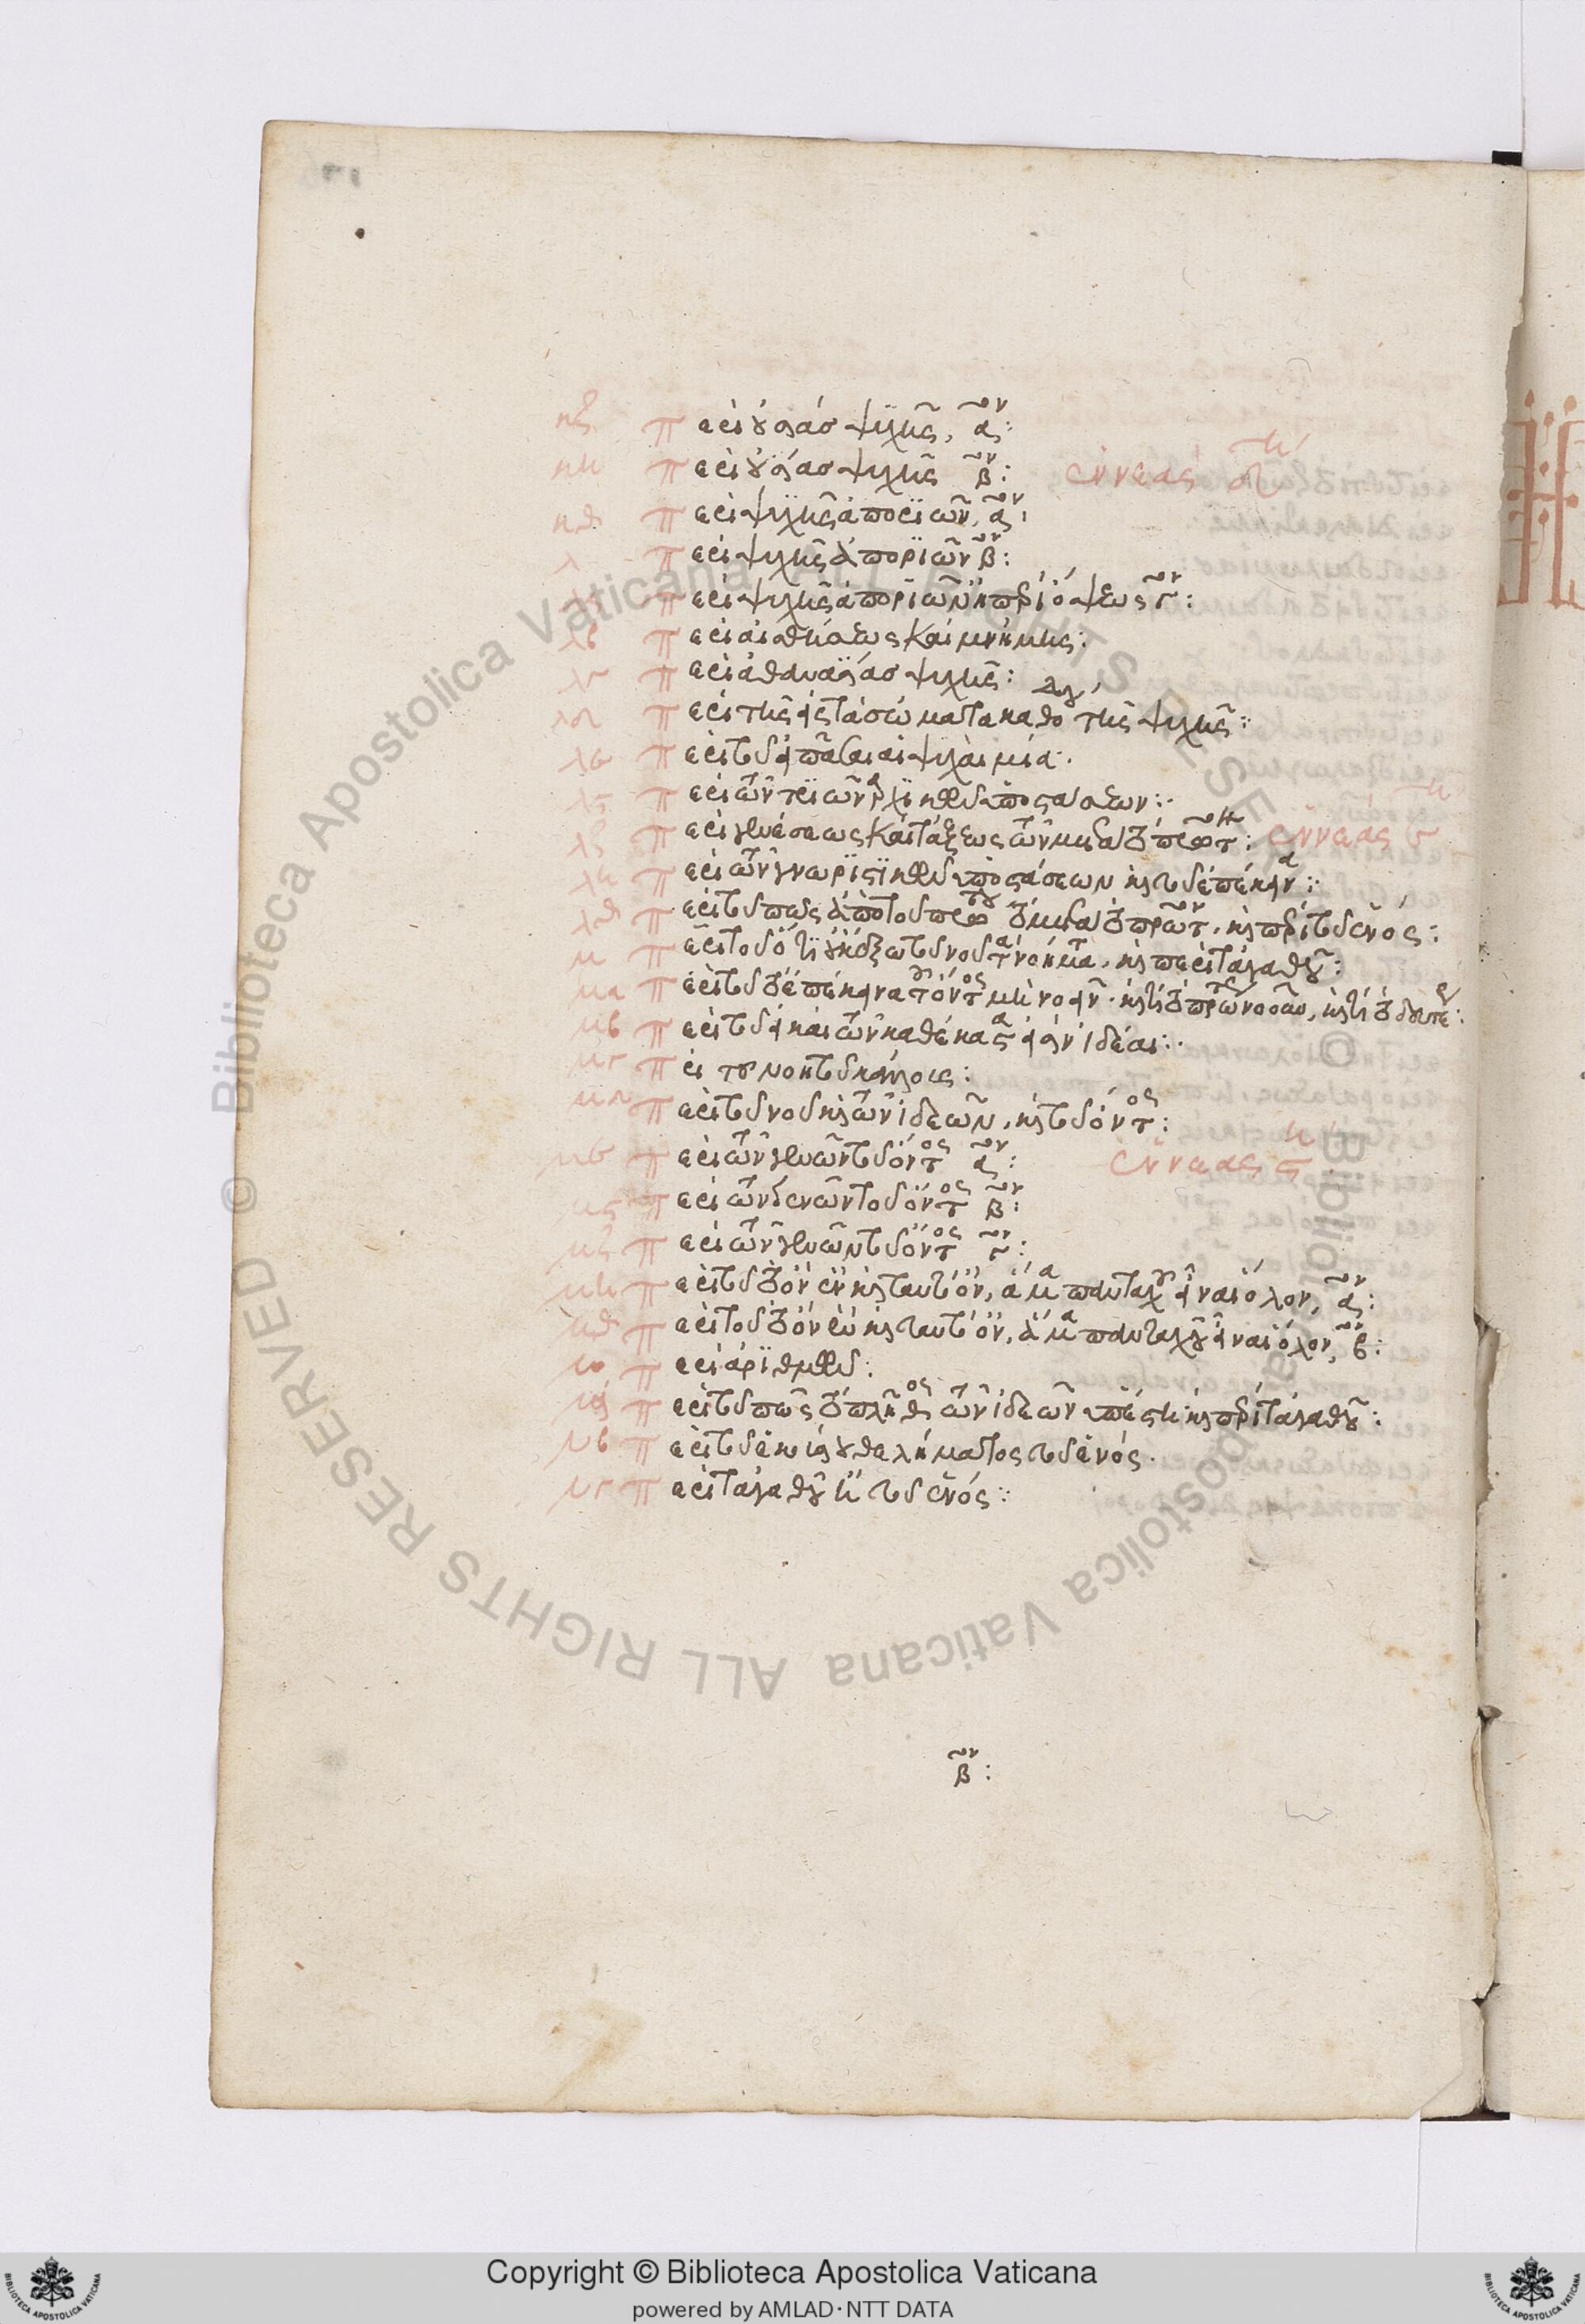 κζ Περὶ οὐσίας ψυχῆς, α^ον:
κη Περὶ οὐσίας ψυχῆς β^ον: ἐννεὰς δ^τη
κθ Περὶ ψυχῆς ἀποριῶν, α^ον:
λ Περὶ ψυχῆς ἀποριῶν β^ον:
λα Περὶ ψυχῆς ἀποριῶν ἢ περὶ ὄψεως γ^ον:
λβ Περὶ αἰσθήσεως καὶ μνήμης:
λγ Περὶ ἀθανασίας ψυχῆς:
λδ Περὶ τῆς εἰς τὰ σώματα καθόδου τῆς ψυχῆς:
λε Περὶ τοῦ εἰ πᾶσαι αἱ ψυχαὶ μία.
λς Περὶ τῶν τριῶν ἀρχικῶν ὑποστάσεων:
λζ Περὶ γενέσεως καὶ τάξεως τῶν μετὰ τὸ πρῶτον: ἐννεὰς ε^τη
λη Περὶ τῶν γνωριστικῶν ὑποστάσεων καὶ τοῦ ἐπέκεινα:
λθ Περὶ τοῦ πῶς ἀπὸ τοῦ πρώτου τὸ μετὰ τὸ πρῶτον. καὶ περὶ τοῦ ἑνός:
μ Περὶ τοῦ ὅτι οὐκ ἔξω τοῦ νοῦ τὰ νοήματα. καὶ περὶ τἀγαθοῦ:
μα Περὶ τοῦ τὸ ἐπέκεινα τοῦ ὄντος μὴ νοεῖν. καὶ τί τὸ πρώτως νοοῦν, καὶ τί τὸ δευτέρως:
μβ Περὶ τοῦ εἰ καὶ τῶν καθέκαστα εἰσὶν ἰδέαι:
μγ Περὶ τοῦ νοητοῦ κάλλους:
μδ Περὶ τοῦ νοῦ καὶ τῶν ἰδεῶν. καὶ τοῦ ὄντος:
με Περὶ τῶν γενῶν τοῦ ὄντος α^ον: ἐννεὰς ς^η
μς Περὶ τῶν γενῶν τοῦ ὄντος β^ον:
μζ Περὶ τῶν γενῶν τοῦ ὄντος γ^ον:
μη Περὶ τοῦ τὸ ὂν ἓν καὶ ταυτὸ ὂν, ἅμα πανταχοῦ εἶναι ὅλον, α^ον:
μθ Περὶ τοῦ τὸ ὂν ἓν καὶ ταυτὸ ὂν, ἅμα πανταχοῦ εἶναι ὅλον, β^ον:
ν Περὶ ἀριθμῶν:
να Περὶ τοῦ πῶς τὸ πλῆθος τῶν ἰδεῶν ὑπέστη καὶ περὶ τἀγαθοῦ:
νβ Περὶ τοῦ ἑκουσίου θελήματος τοῦ ἑνός.
νγ Περὶ τἀγαθοῦ ἢ τοῦ ἑνός:
β^ον:
Copyright © Biblioteca Apostolica Vaticana
powered by AMLAD·NTT DATA